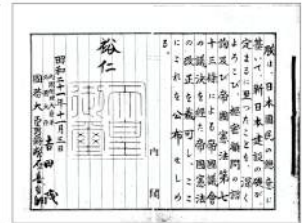 朕は、日本國民の總意に
基いて、新日本建設の礎が、
定まるに至つたことを、深く
よろこび、樞密顧問の諮
詢及び帝國憲法第七
十三條による帝國議會
の議決を経た帝國憲法
の改正を裁可し、ここ
にこれを公布せしめ
る。
内閣
裕仁
天皇御璽
昭和二十一年十一月三日
内閣總理大臣兼
外務大臣 吉田茂
國務大臣 男爵 幣原喜重郎